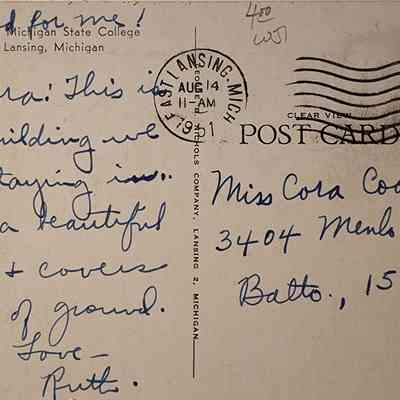 d for me!
Michigan State College
Lansing, Michigan
ra! This is
uilding we
taying in..
a beautiful
+ covers
of ground.
Love -
Ruth.
400
EAST LANSING, MICH.
AUG 14
11-AM
CLEAR VIEW
POST CARD
NICHOLS COMPANY, LANSING 2, MICHIGAN
Miss Cora Coo
3404 Menlo
Balto., 15